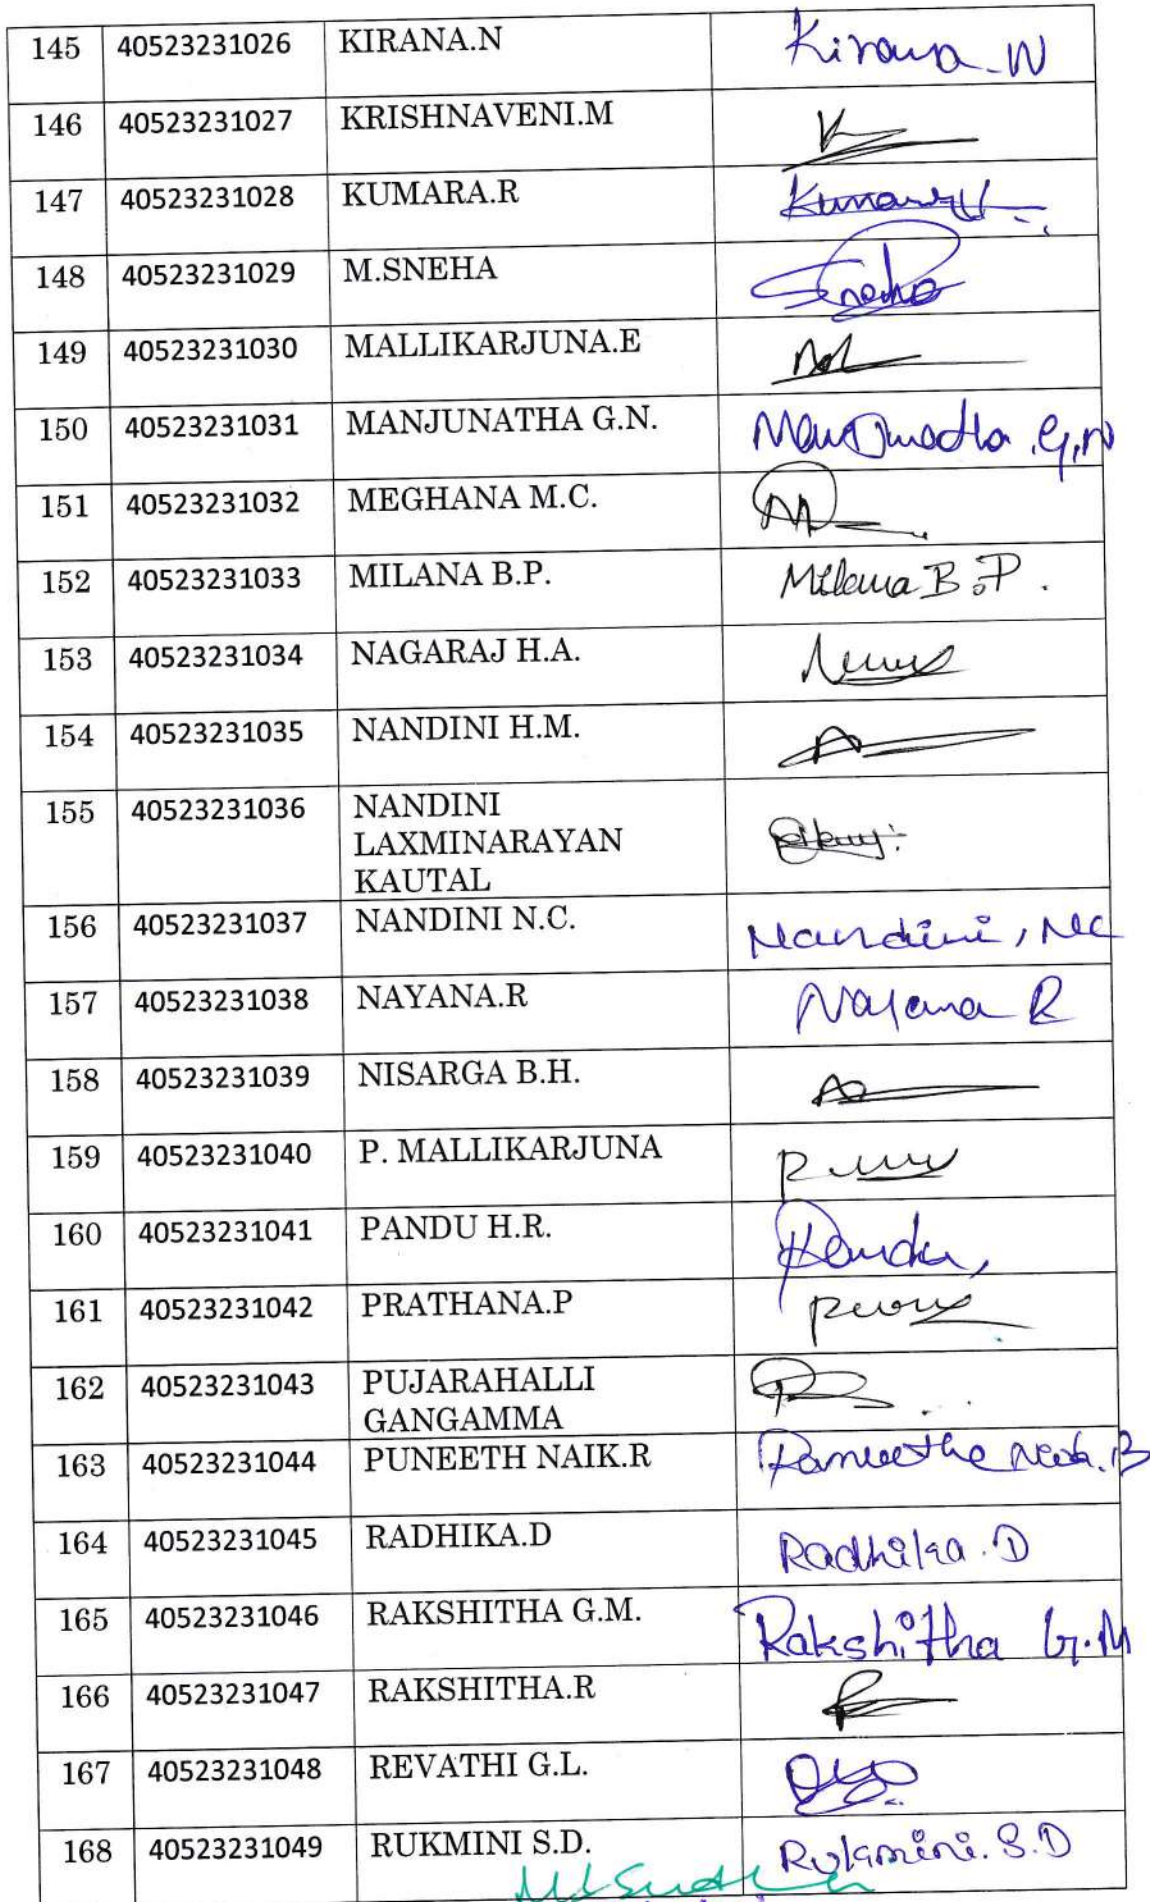 145 40523231026 KIRANA.N Kirana N
146 40523231027 KRISHNAVENI.M
147 40523231028 KUMARA.R
148 40523231029 M.SNEHA Sneha
149 40523231030 MALLIKARJUNA.E
150 40523231031 MANJUNATHA G.N. Manjunatha .G.N
151 40523231032 MEGHANA M.C.
152 40523231033 MILANA B.P. Milana B.P.
153 40523231034 NAGARAJ H.A.
154 40523231035 NANDINI H.M.
155 40523231036 NANDINI
LAXMINARAYAN
KAUTAL
156 40523231037 NANDINI N.C. Nandini, NC
157 40523231038 NAYANA.R Nayana R
158 40523231039 NISARGA B.H.
159 40523231040 P. MALLIKARJUNA
160 40523231041 PANDU H.R. Pandu,
161 40523231042 PRATHANA.P
162 40523231043 PUJARAHALLI
GANGAMMA
163 40523231044 PUNEETH NAIK.R
164 40523231045 RADHIKA.D Radhika.D
165 40523231046 RAKSHITHA G.M. Rakshitha G.M
166 40523231047 RAKSHITHA.R
167 40523231048 REVATHI G.L.
168 40523231049 RUKMINI S.D. Rukmini.S.D